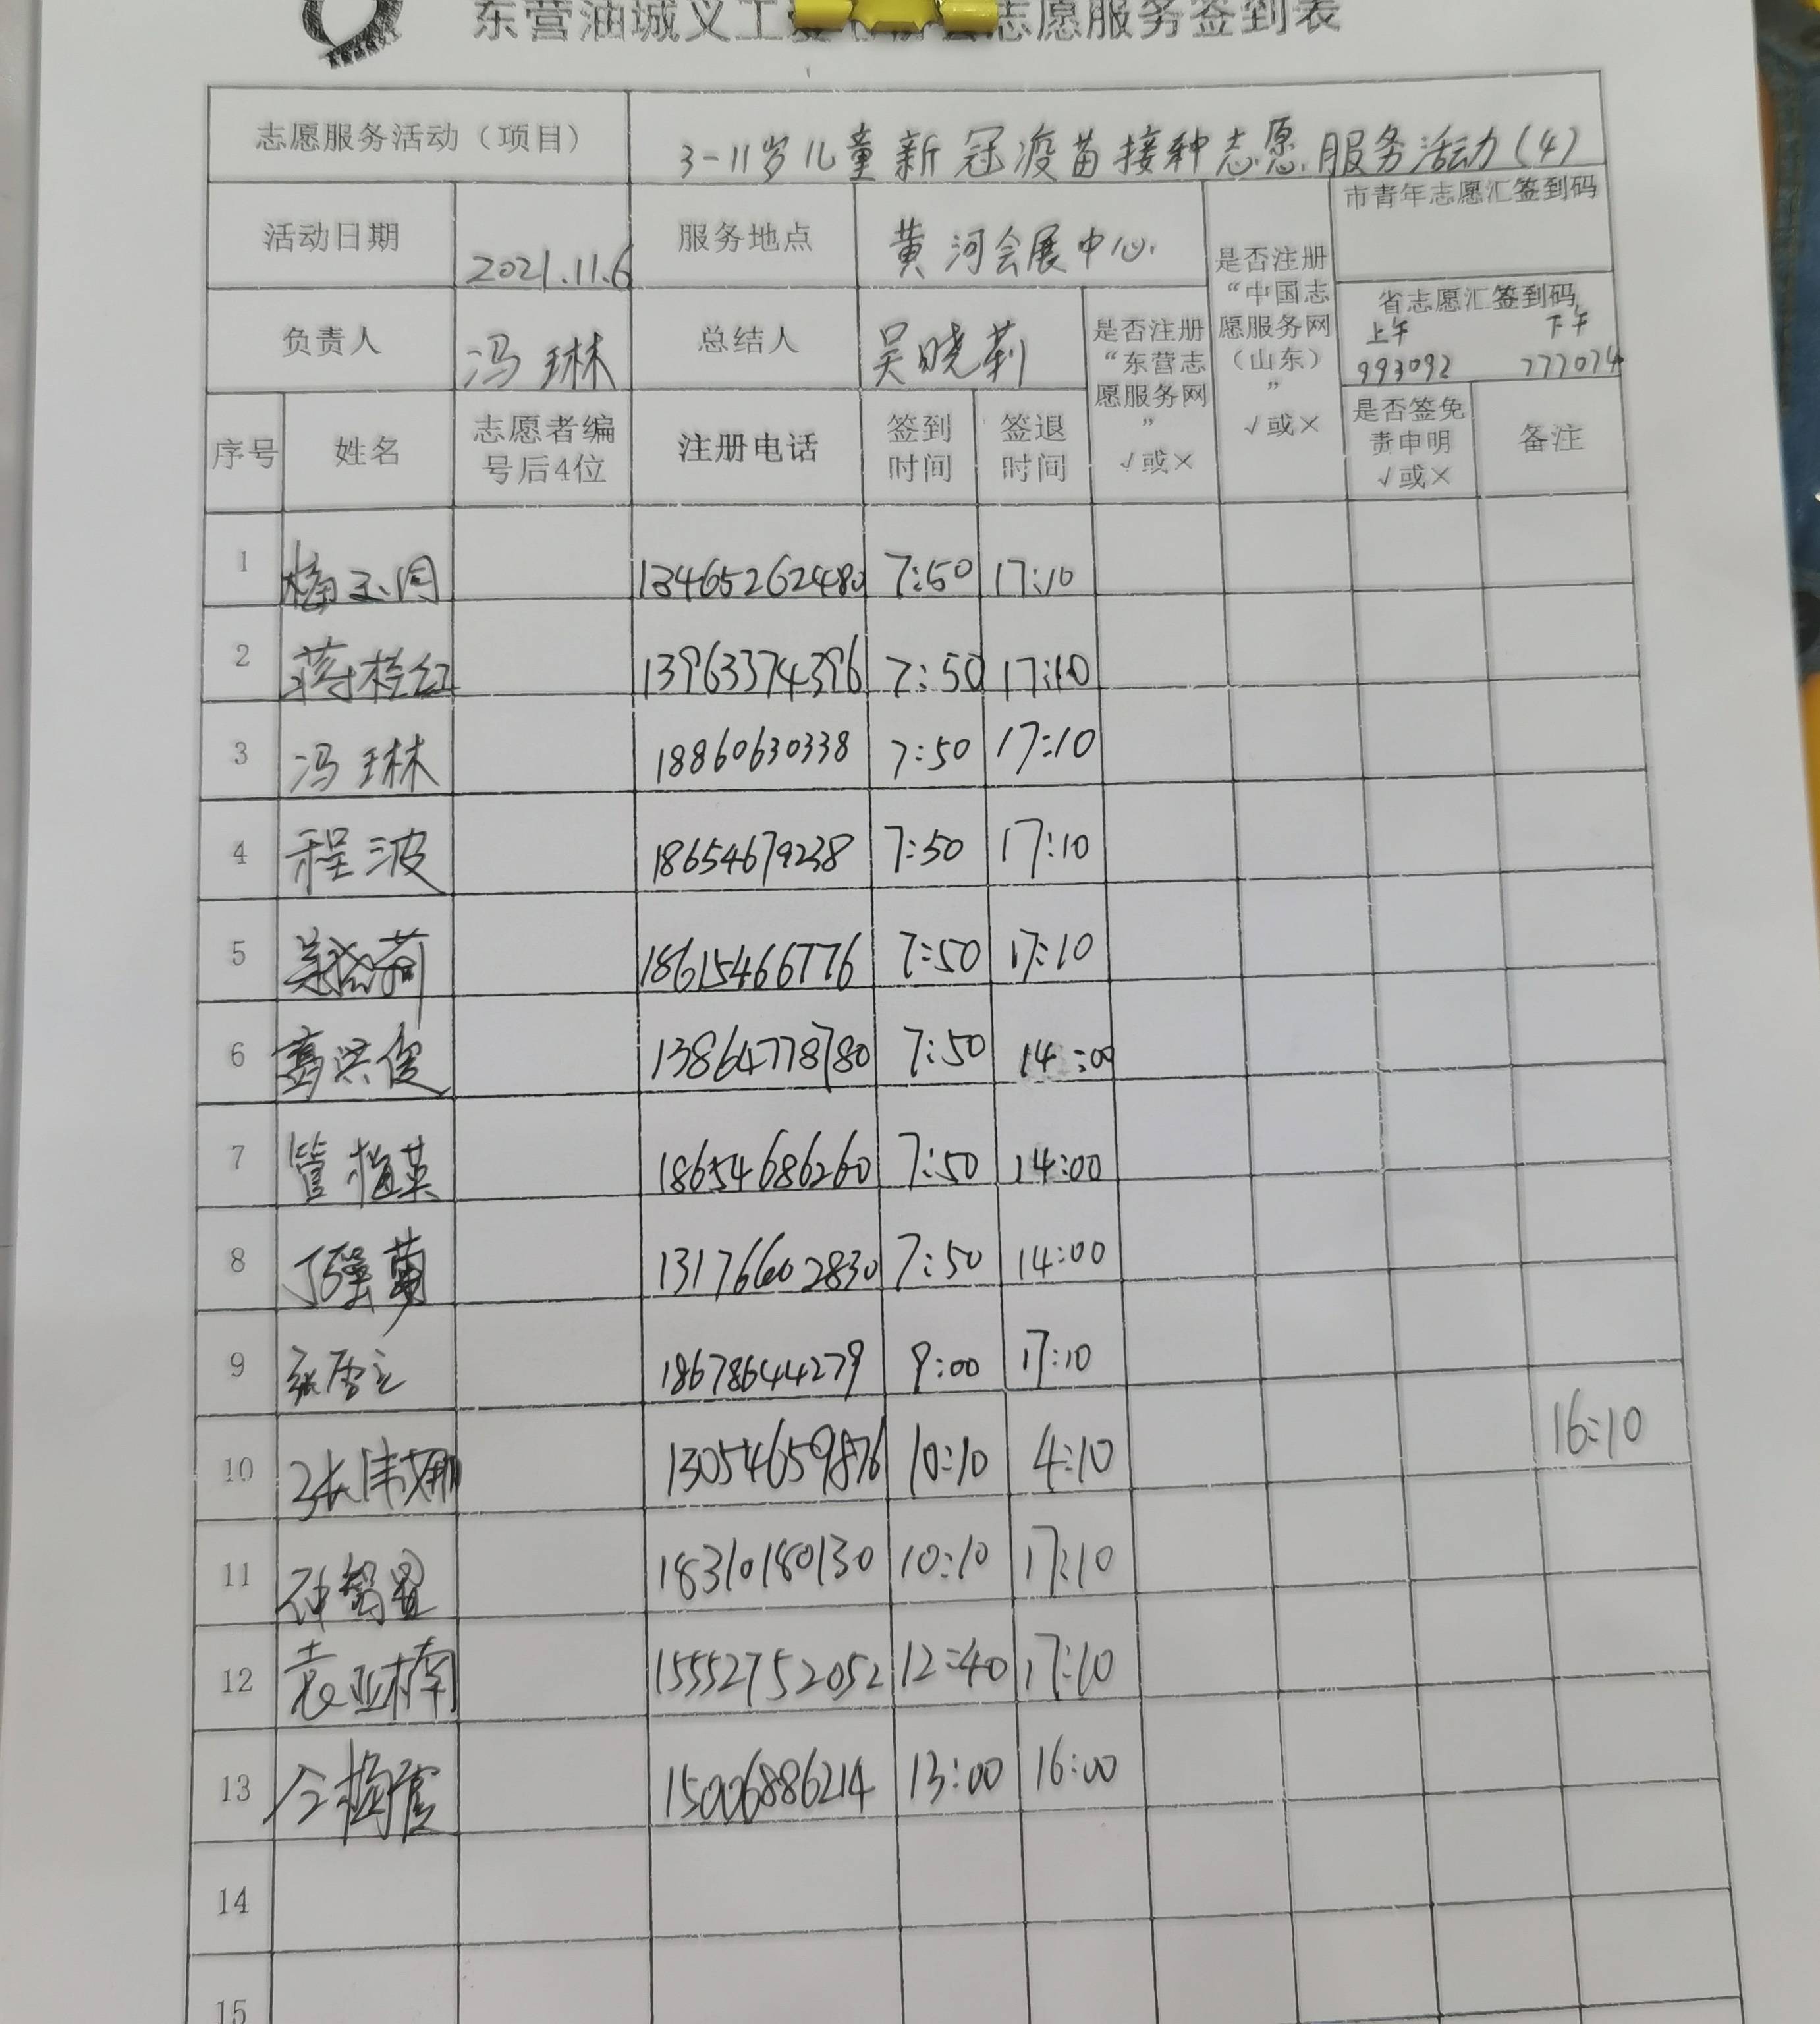 东营油城义工 志愿服务签到表
志愿服务活动（项目） 3-11岁儿童新冠疫苗接种志愿服务活动(4)
活动日期 2021.11.6 服务地点 黄河会展中心.
是否注册“中国志愿服务网（山东）” √或×
市青年志愿汇签到码
省志愿汇签到码
上午 下午
993092 777074
负责人 冯琳 总结人 吴晓莉
是否注册“东营志愿服务网” √或×
序号 姓名 志愿者编号后4位 注册电话 签到时间 签退时间 是否签免责申明 √或× 备注
1 13465262480 7:50 17:10
2 蒋桂红 13963374396 7:50 17:10
3 冯琳 18860630338 7:50 17:10
4 程波 18654679238 7:50 17:10
5 吴晓莉 18615466776 7:50 17:10
6 高洪俊 13864778780 7:50 14:00
7 管梅英 18654686260 7:50 14:00
8 13176602830 7:50 14:00
9 18678644279 9:00 17:10
10 张伟娜 13054659876 10:10 4:10 16:10
11 18310180130 10:10 17:10
12 袁亚楠 15552752052 12:40 17:10
13 15006886214 13:00 16:00
14
15